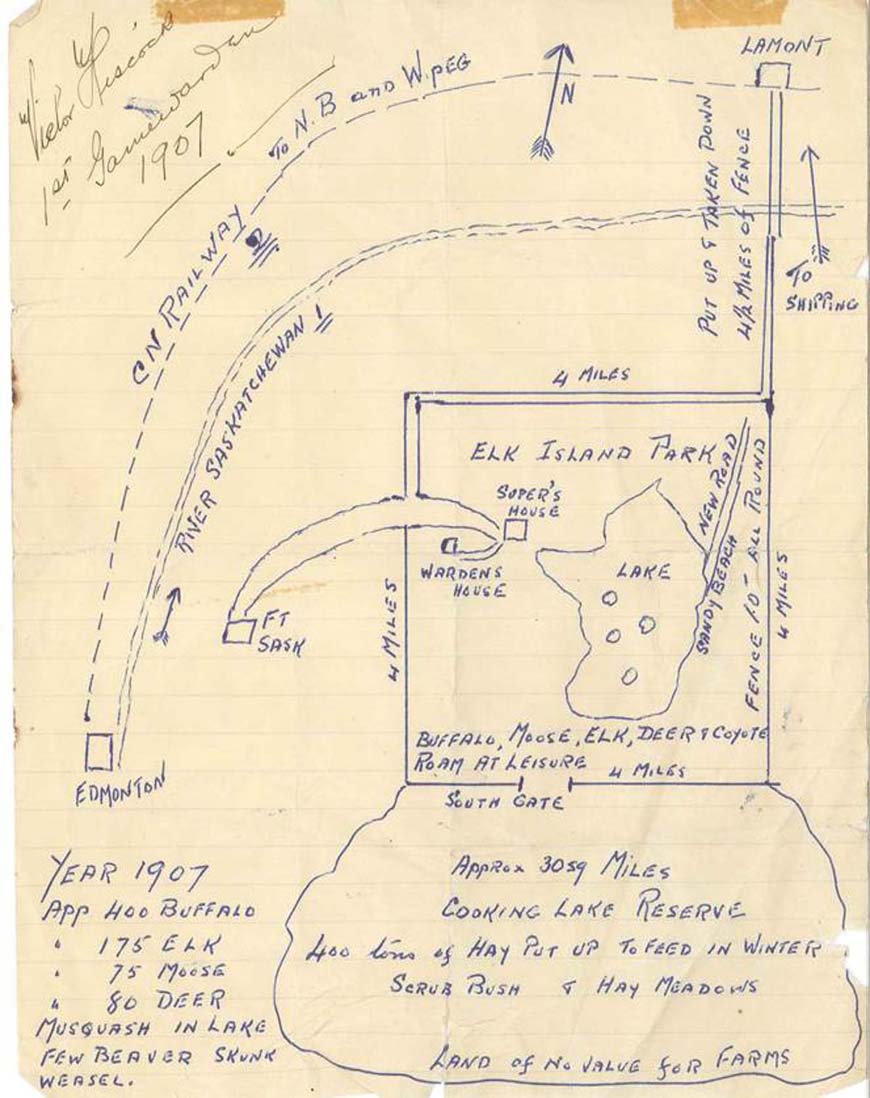 Victor Hiscock
1st Gamewarden
1907
To N.B and W.PEG
N
LAMONT
CN RAILWAY 2
RIVER SASKATCHEWAN 1
PUT UP & TAKEN DOWN
4½ MILES OF FENCE
TO
SHIPPING
4 MILES
ELK ISLAND PARK
SUPER'S
HOUSE
WARDENS
HOUSE
LAKE
NEW ROAD
SANDY BEACH
FENCE 10- ALL ROUND
4 MILES
4 MILES
FT
SASK
EDMONTON
BUFFALO, MOOSE, ELK, DEER & COYOTE
ROAM AT LEISURE
4 MILES
SOUTH GATE
YEAR 1907
APP 400 BUFFALO
" 175 ELK
" 75 MOOSE
" 80 DEER
MUSQUASH IN LAKE
FEW BEAVER SKUNK
WEASEL.
APPROX 30 SQ MILES
COOKING LAKE RESERVE
400 tons of HAY PUT UP TO FEED IN WINTER
SCRUB BUSH & HAY MEADOWS
LAND of NO VALUE for FARMS